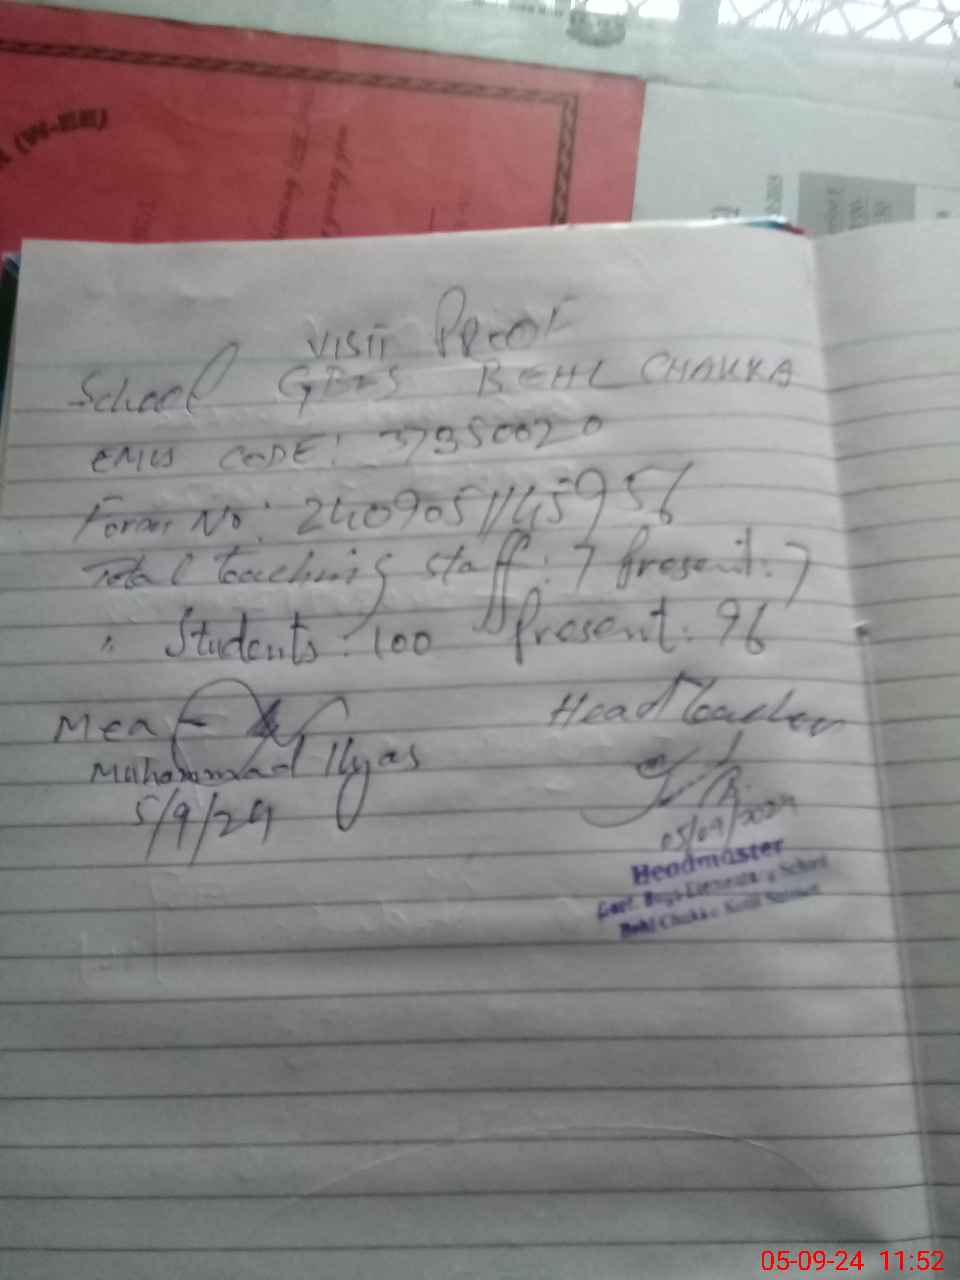 (W-EE)
VISIT PROOF
School GBES BEHL CHAKKA
EMIS CODE: 37350020
Form No: 2409051145956
Total teaching staff: 7 Present: 7
" Students: 100 Present: 96
Mea
Head Teacher
Muhammad Ilyas
5/9/24
05/09/2024
Headmaster
Govt. Boys Elementary School
Behl Chakka Kotli Sattian
05-09-24 11:52